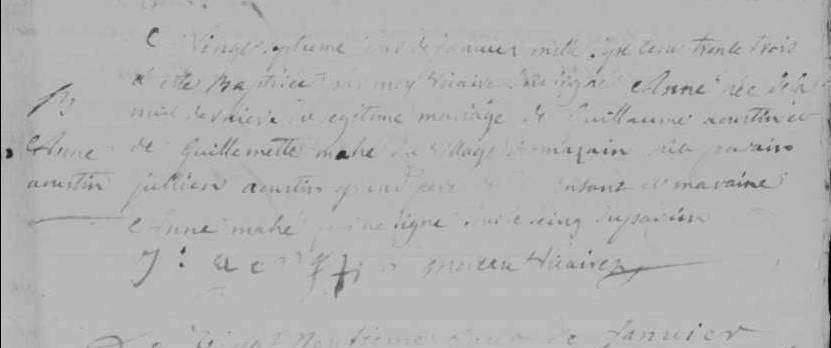 vingt septieme jour de janvier mille sept cent trente trois
a esté Baptisée par moy vicaire soussigné Anne née de la
B
nuit derniere du legitime mariage de Guillaume aoustin et
Anne de Guillemette mahé du village de son parain
aoustin jullien aoustin grand pere enfant et maraine
Anne mahé signe le seing du parain
J : moreau vicaire
Le vingt Neufieme jour de Janvier